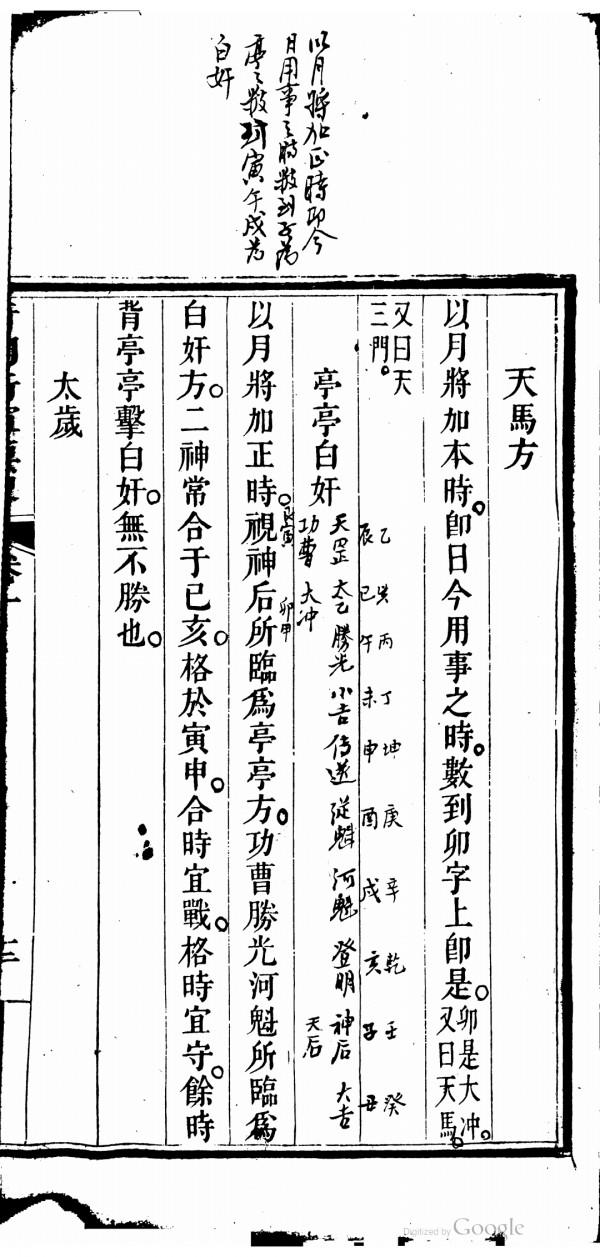 以月將加正時即今
日用事之時數到子為
亭亭數到寅午戌为
白奸
天馬方
以月將加本時。卽日今用事之時。數到卯字上卽是。卯是大冲。
又曰天馬。
又曰天
三門。
乙 巽 丙 丁 坤 庚 辛 乾 壬 癸
辰 巳 午 未 申 酉 戌 亥 子 丑
亭亭白奸
天罡 太乙 勝光 小吉 传送 從魁 河魁 登明 神后 大吉
功曹 大冲
天后
艮寅 卯甲
以月將加正時。視神后所臨爲亭亭方。功曹勝光河魁所臨爲
白奸方。二神常合于巳亥。格於寅申。合時宜戰。格時宜守。餘時
背亭亭擊白奸。無不勝也。
太歲
三
Digitized by Google